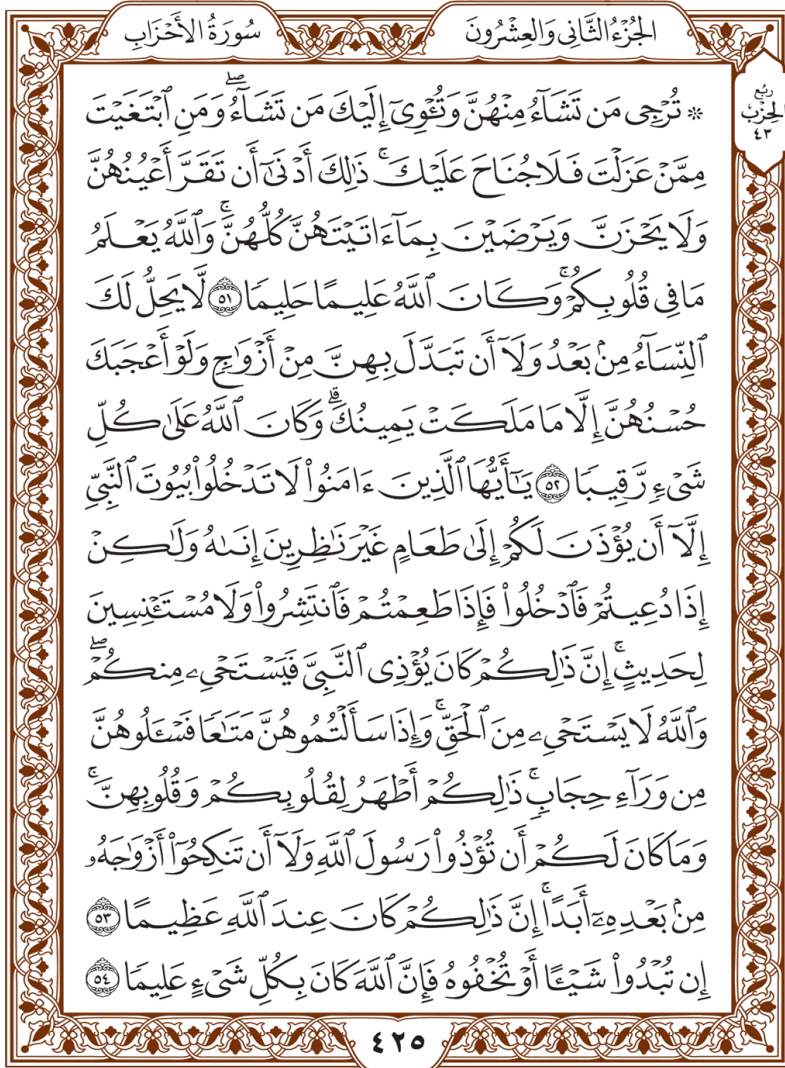 الجُزْءُ الثَّانِي وَالعِشْرُونَ
سُورَةُ الأَحْزَابِ
رُبْعُ
الحِزْبِ
٤٣
۞ تُرْجِى مَن تَشَآءُ مِنْهُنَّ وَتُـْٔوِىٓ إِلَيْكَ مَن تَشَآءُۖ وَمَنِ ٱبْتَغَيْتَ
مِمَّنْ عَزَلْتَ فَلَا جُنَاحَ عَلَيْكَۚ ذَٰلِكَ أَدْنَىٰٓ أَن تَقَرَّ أَعْيُنُهُنَّ
وَلَا يَحْزَنَّ وَيَرْضَيْنَ بِمَآ ءَاتَيْتَهُنَّ كُلُّهُنَّۚ وَٱللَّهُ يَعْلَمُ
مَا فِى قُلُوبِكُمْۚ وَكَانَ ٱللَّهُ عَلِيمًا حَلِيمًا ٥١ لَّا يَحِلُّ لَكَ
ٱلنِّسَآءُ مِنۢ بَعْدُ وَلَآ أَن تَبَدَّلَ بِهِنَّ مِنْ أَزْوَٰجٍ وَلَوْ أَعْجَبَكَ
حُسْنُهُنَّ إِلَّا مَا مَلَكَتْ يَمِينُكَۗ وَكَانَ ٱللَّهُ عَلَىٰ كُلِّ
شَىْءٍ رَّقِيبًا ٥٢ يَـٰٓأَيُّهَا ٱلَّذِينَ ءَامَنُوا۟ لَا تَدْخُلُوا۟ بُيُوتَ ٱلنَّبِىِّ
إِلَّآ أَن يُؤْذَنَ لَكُمْ إِلَىٰ طَعَامٍ غَيْرَ نَـٰظِرِينَ إِنَىٰهُ وَلَـٰكِنْ
إِذَا دُعِيتُمْ فَٱدْخُلُوا۟ فَإِذَا طَعِمْتُمْ فَٱنتَشِرُوا۟ وَلَا مُسْتَـْٔنِسِينَ
لِحَدِيثٍۚ إِنَّ ذَٰلِكُمْ كَانَ يُؤْذِى ٱلنَّبِىَّ فَيَسْتَحْىِۦ مِنكُمْۖ
وَٱللَّهُ لَا يَسْتَحْىِۦ مِنَ ٱلْحَقِّۚ وَإِذَا سَأَلْتُمُوهُنَّ مَتَـٰعًا فَسْـَٔلُوهُنَّ
مِن وَرَآءِ حِجَابٍۚ ذَٰلِكُمْ أَطْهَرُ لِقُلُوبِكُمْ وَقُلُوبِهِنَّۚ
وَمَا كَانَ لَكُمْ أَن تُؤْذُوا۟ رَسُولَ ٱللَّهِ وَلَآ أَن تَنكِحُوٓا۟ أَزْوَٰجَهُۥ
مِنۢ بَعْدِهِۦٓ أَبَدًاۚ إِنَّ ذَٰلِكُمْ كَانَ عِندَ ٱللَّهِ عَظِيمًا ٥٣
إِن تُبْدُوا۟ شَيْـًٔا أَوْ تُخْفُوهُ فَإِنَّ ٱللَّهَ كَانَ بِكُلِّ شَىْءٍ عَلِيمًا ٥٤
٤٢٥